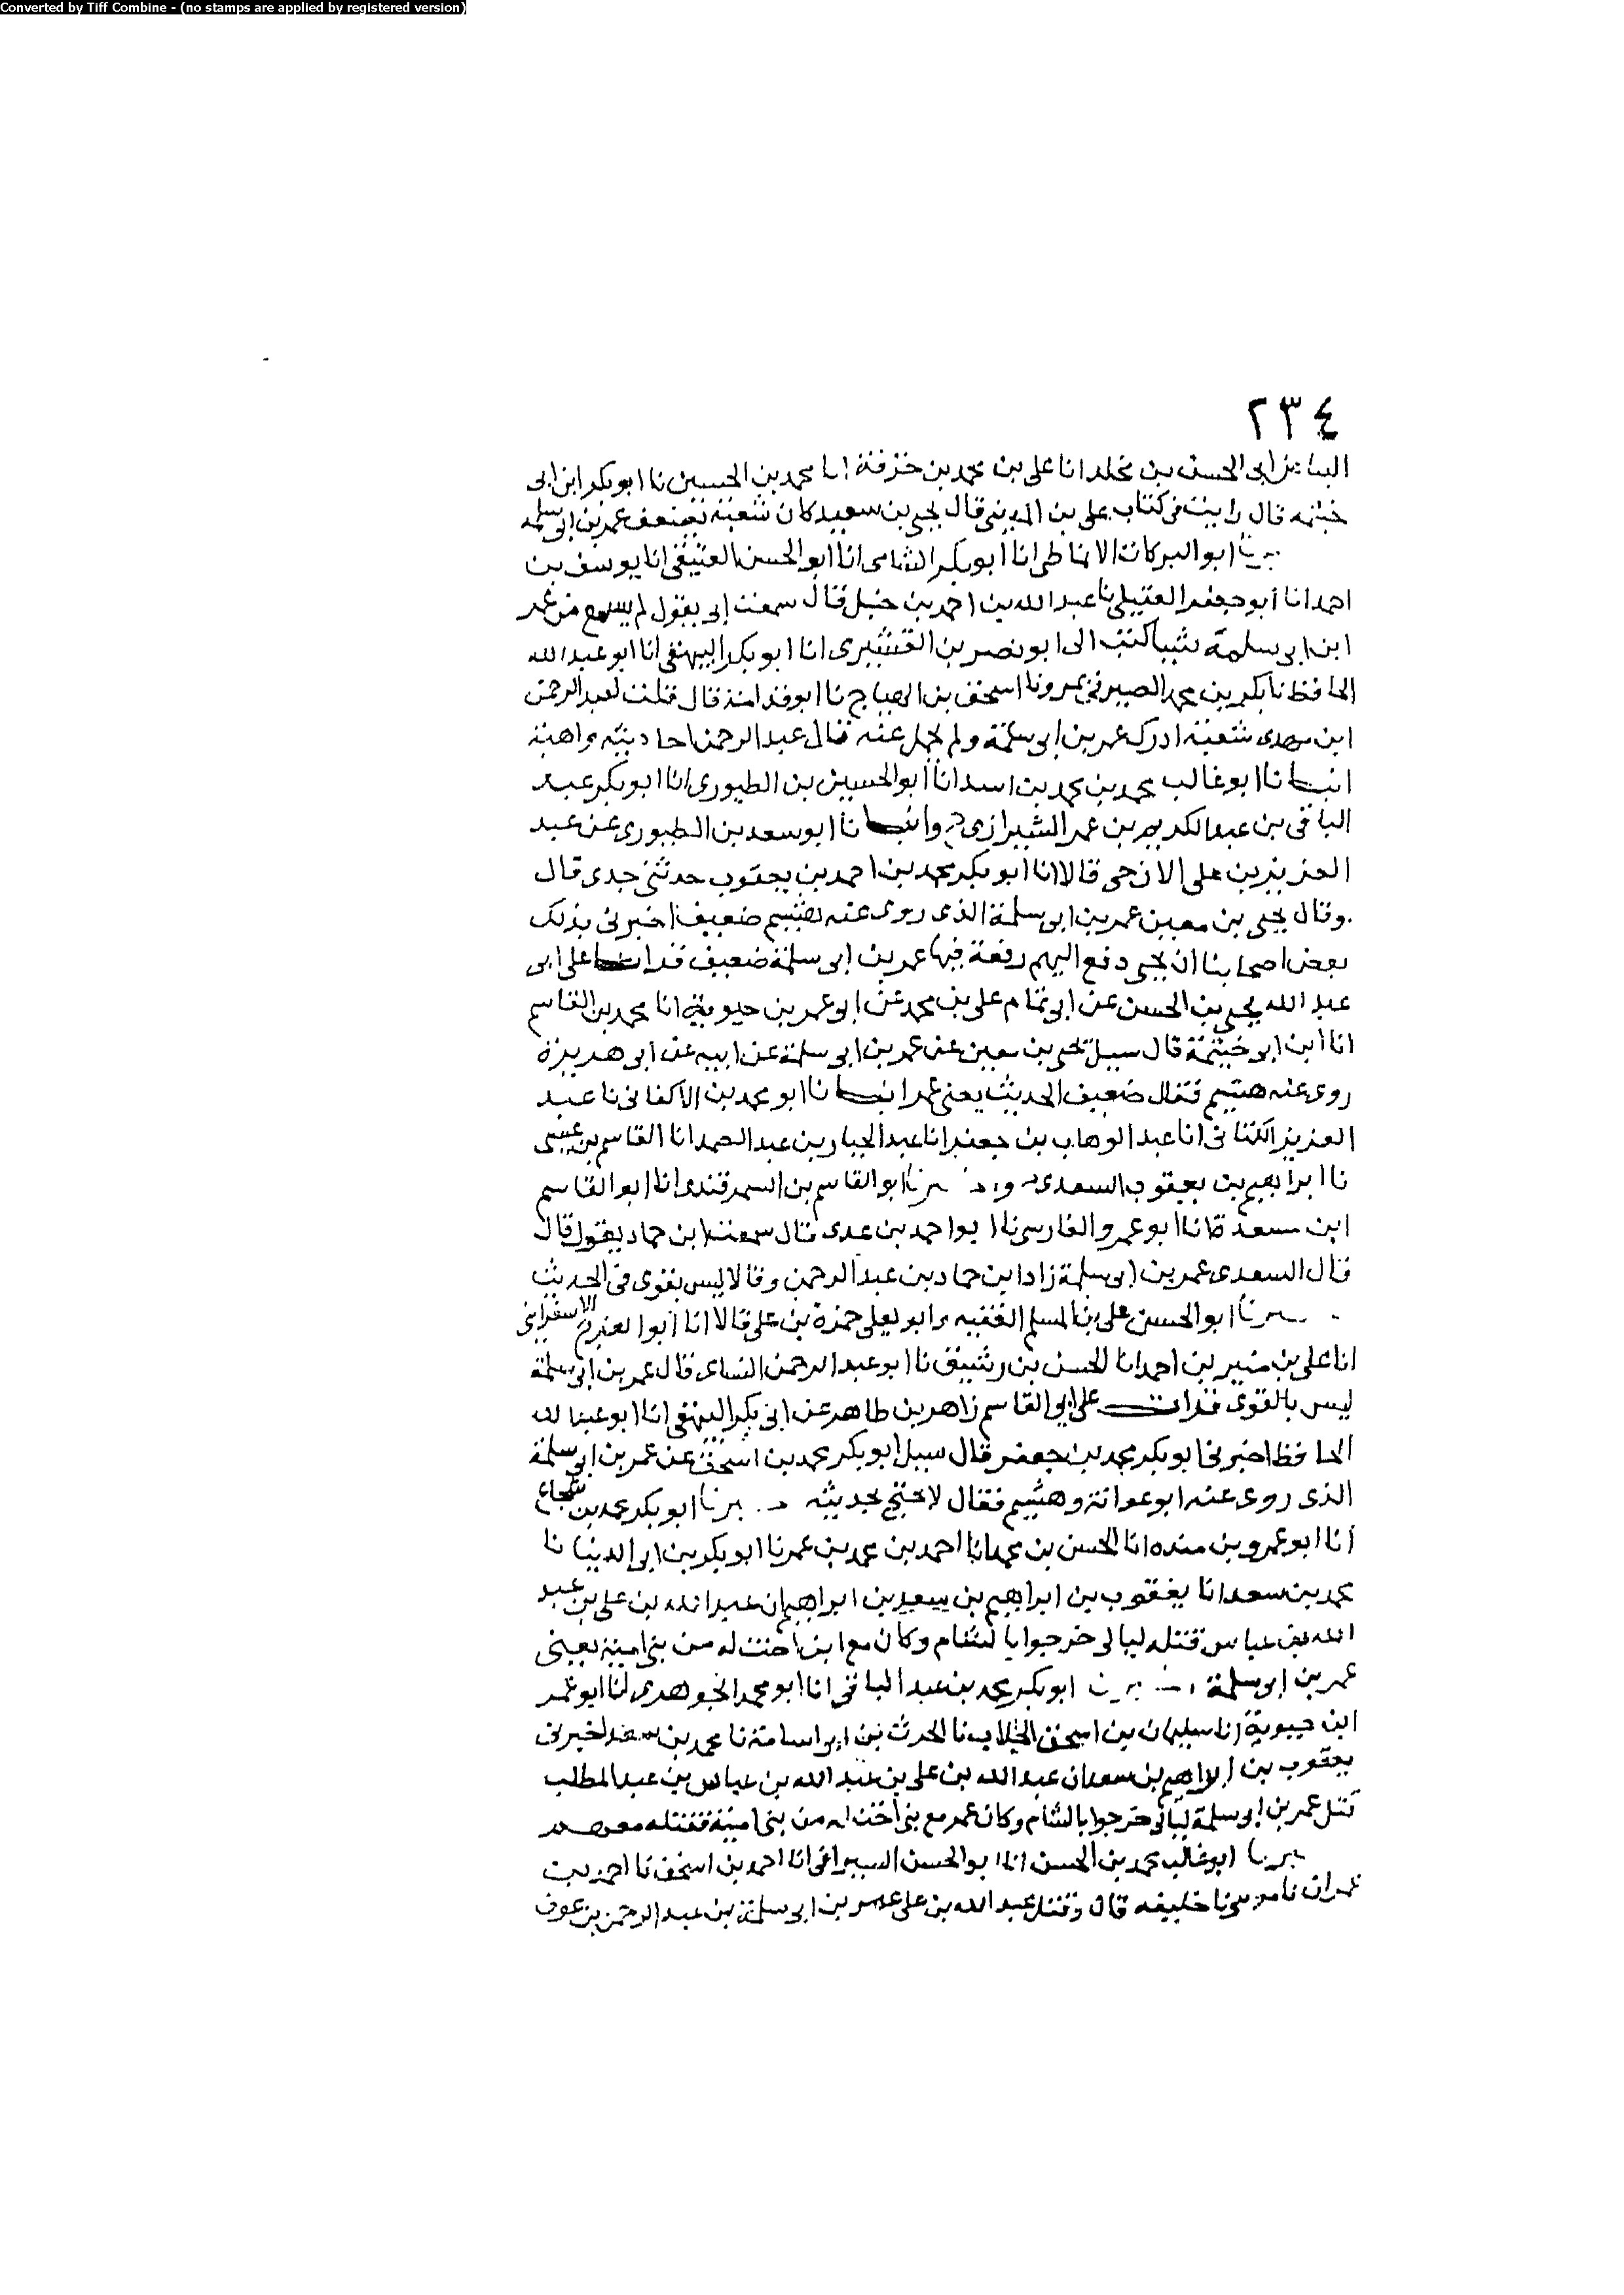 Converted by Tiff Combine - (no stamps are applied by registered version)
٢٣٤
ابى الحسن بن مخلد انا على بن محمد بن خزفة انا محمد بن الحسين نا ابو بكر ابن ابى
خيثمه قال رايت فى كتاب على بن المدينى قال يحيى بن سعيد كان شعبة يضعف عمر بن ابى سلمه
ابو البركات الانماطى انا ابو بكر الشامى انا ابو الحسن العتيقى انا يوسف بن
احمد انا ابو جعفر العقيلى نا عبد الله بن احمد بن حنبل قال سمعت ابى يقول لم يسمع من عمر
ابن ابى سلمة شيبا كتب الى ابو نصر بن القشيرى انا ابو بكر البيهقى انا ابو عبد الله
الحافظ نا بكر بن محمد الصيرفى بمرو نا اسحق بن الهياج نا ابو قدامة قال قلت لعبد الرحمن
ابن مهدى شعبة ادرك عمر بن ابى سلمة ولم يحمل عنه قال عبد الرحمن احاديثه واهية
انبانا ابو غالب محمد بن محمد بن اسد انا ابو الحسين بن الطيورى انا ابو بكر عبد
الباقى بن عبد الكريم بن عمر الشيرازى ح وانبانا ابو سعد بن الطيورى عن عبد
العزيز بن على الازجى قالا انا ابو بكر محمد بن احمد بن يعقوب حدثنى جدى قال
وقال يحيى بن معين عمر بن ابى سلمة الذى روى عنه هشيم ضعيف اخبرنى بذلك
بعض اصحابنا ان يحيى دفع اليهم رقعة فيها عمر بن ابى سلمة ضعيف قرات على ابى
عبد الله يحيى بن الحسن عن ابى تمام على بن محمد عن ابى عمر بن حيوية انا محمد بن القاسم
انا ابن ابى خيثمة قال سيل يحيى بن معين عن عمر بن ابى سلمة عن ابيه عن ابى هريرة
روى عنه هشيم فقال ضعيف الحديث يعنى عمر انبانا ابو محمد بن الاكفانى نا عبد
العزيز الكتانى انا عبد الوهاب بن جعفر انا عبد الجبار بن عبد الصمد انا القاسم بن عيسى
نا ابراهيم بن يعقوب السعدى ح و ابو القاسم بن السمرقندى انا ابو القاسم
ابن مسعدة انا ابو عمرو الفارسى نا ابو احمد بن عدى قال سمعت ابن حماد يقول قال
قال السعدى عمر بن ابى سلمة زاد ابن حماد بن عبد الرحمن وقالا ليس بقوى فى الحديث
ابو الحسن على بن المسلم الفقيه وابو يعلى حمزة بن على قالا انا ابو الفرج الاسفراينى
انا على بن منير بن احمد انا الحسن بن رشيق نا ابو عبد الرحمن النساى قال عمر بن ابى سلمة
ليس بالقوى قرات على ابى القاسم زاهر بن طاهر عن ابى بكر البيهقى انا ابو عبد الله
الحافظ اخبرنى ابو بكر محمد بن جعفر قال سيل ابو بكر محمد بن اسحق عن عمر بن ابى سلمة
الذى روى عنه ابو عوانة وهشيم فقال لا يحتج بحديثه ابو بكر محمد بن شجاع
انا ابو عمرو بن منده انا الحسن بن محمد انا احمد بن محمد بن عمر نا ابو بكر بن ابى الدنيا نا
محمد بن سعد انا يعقوب بن ابراهيم بن سعيد بن ابراهيم ان عبد الله بن على بن عبد
الله بن عباس قتله ليالى خرجوا بالشام وكان مع ابن اخت له من بنى امية يعنى
عمر بن ابى سلمة ابو بكر محمد بن عبد الباقى انا ابو محمد الجوهرى انا ابو عمر
ابن حيوية انا سليمان بن اسحق الجلاب نا الحرث بن ابى اسامة نا محمد بن سعد اخبرنى
يعقوب بن ابراهيم بن سعد ان عبد الله بن على بن عبد الله بن عباس بن عبد المطلب
قتل عمر بن ابى سلمة ليالى خرجوا بالشام وكان عمر مع بنى اخت له من بنى امية فقتله معهم
ابو غالب محمد بن الحسن انا ابو الحسن السيرافى انا احمد بن اسحق نا احمد بن
عمران نا موسى نا خليفه قال وقتل عبد الله بن على عمر بن ابى سلمة بن عبد الرحمن بن عوف